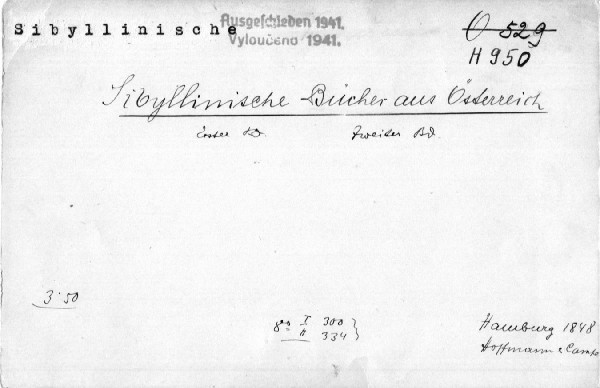 Sibyllinische
Ausgeschieden 1941.
Vyloučeno 1941.
O 529
H 950
Sibyllinische Bücher aus Österreich
Erster Bd. Zweiter Bd.
3·50
8° I 300
II 334
Hamburg 1848
Hoffmann & Campe